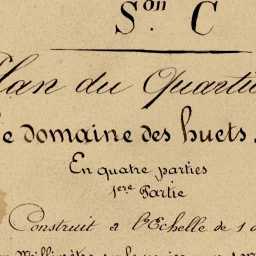 Son C
Plan du Quartie
le domaine des huets.
En quatre parties
1ere Partie
Construit à l'Echelle de 1 d